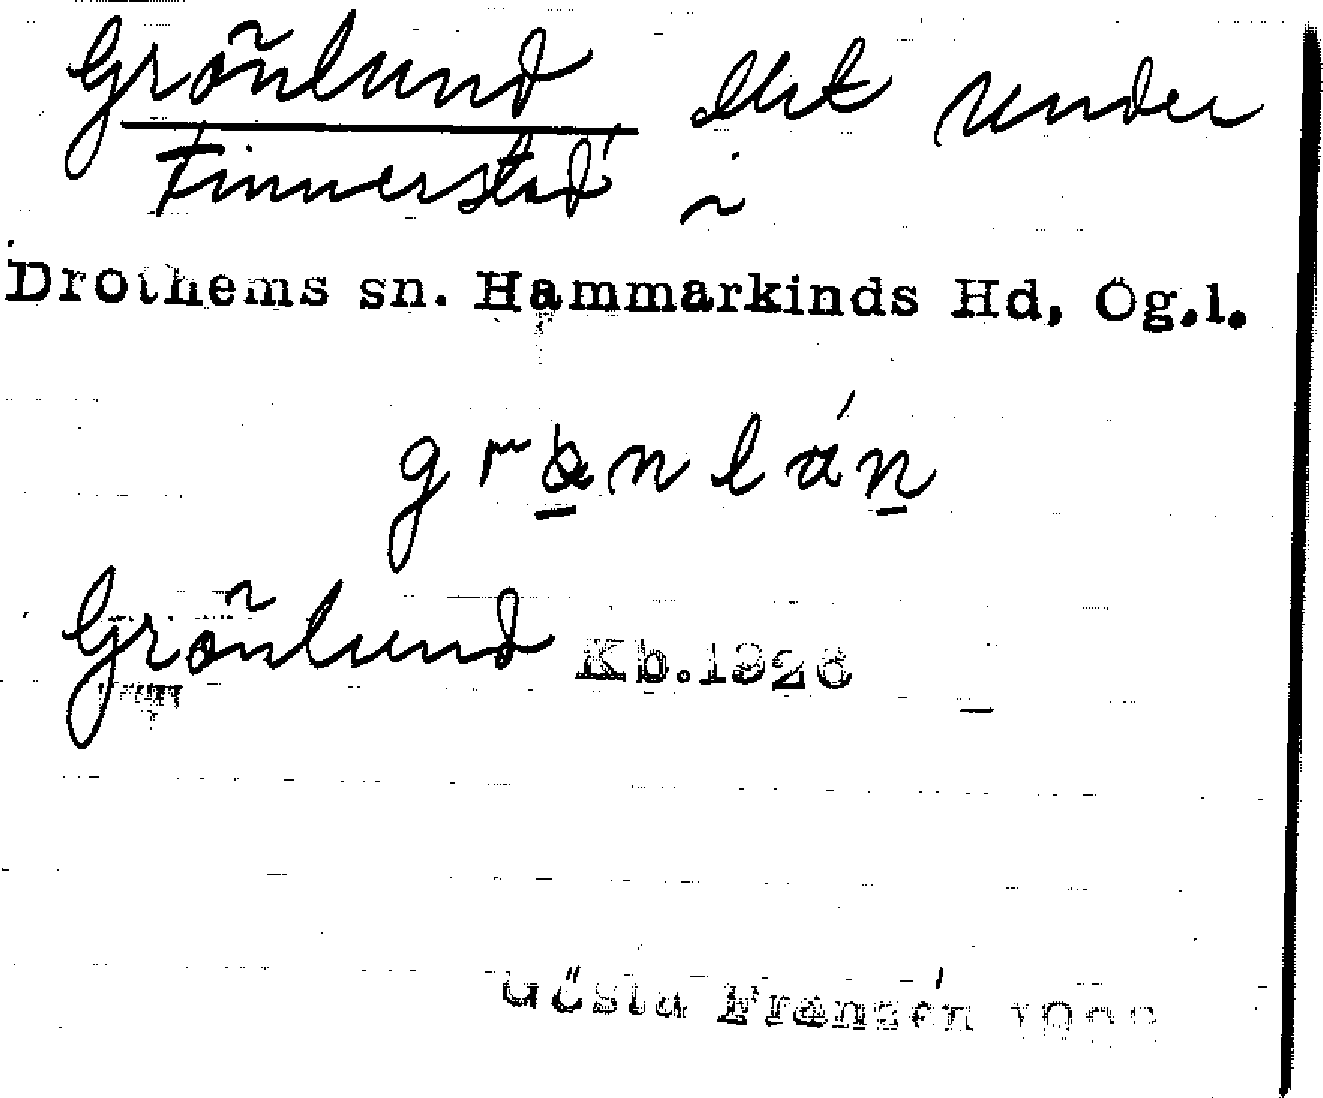 Grönlund Utr under
Finnerstad i
Drothems sn. Hammarkinds Hd, Ög.l.
Grönlund Kb.1926
Gösta Franzén